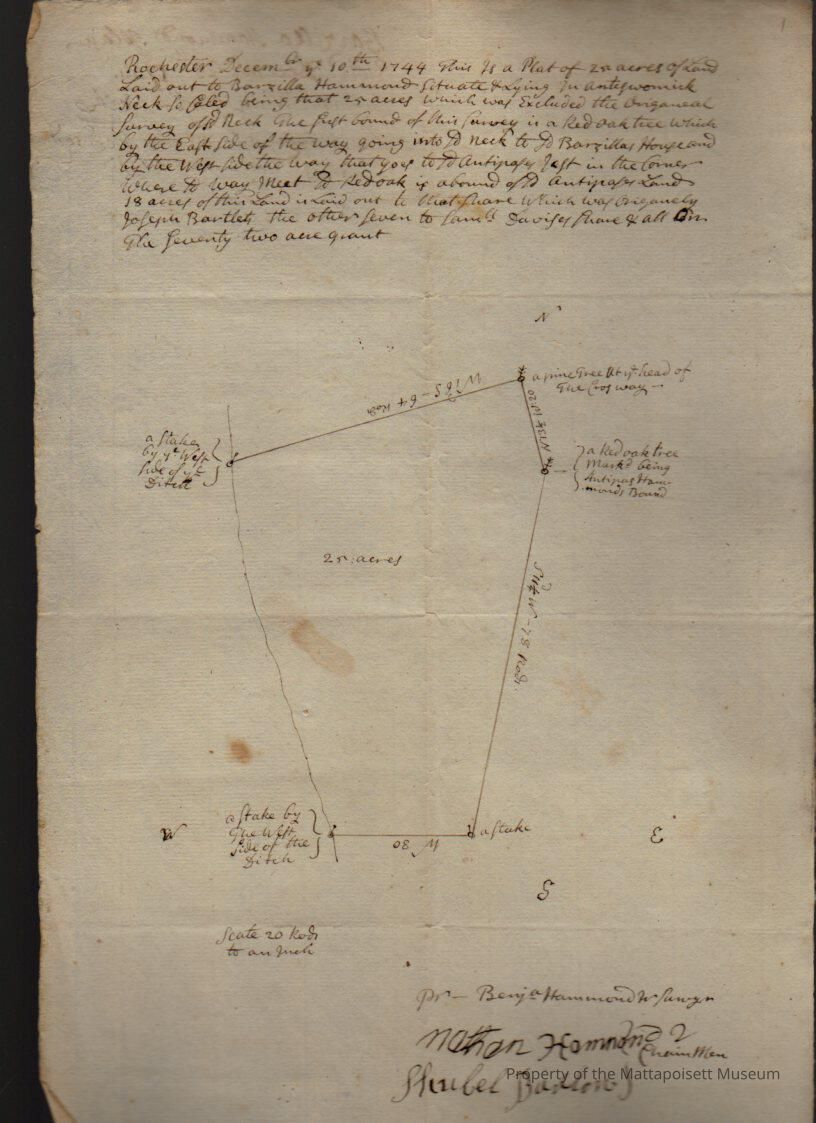 Rochester Decembr ye 10th 1744 This Is a Plat of 25 acres of Land
Laid out to Barzilla Hammond Situate & Lying In Anteswomick
Neck so Caled being that 25 acres which was Excluded the Origaneal
Survey of sd Neck The first bound of this Survey is a Red oak tree which
by the East side of the way going into sd Neck to sd Barzillas House and
by the West side the way that goes to sd Antipasys Just in the Corner
Where sd Way Meet sd Red oak is a bound of sd Antipases Land
18 acres of this Land is Laid out to that share which was Origanely
Joseph Bartlets the other seven to Samll Davises share & all on
The Seventy two acre grant
N
W 18 S - 64 Rods
a pine Tree At ye head of
The Crosway
N 13½ W 20
a Stake
by ye West
side of ye
Ditch
a Red oak tree
Markd being
Antipas Ham-
monds Bound
25 acres
S 11¼ W - 78 Rods
a Stake by
The West
side of the
Ditch
W
W 30
a Stake
E
S
Scale 20 Rods
to an Inch
Pr - Benja Hammond Jr Survyr
Nathan Hammond
Chain Men
Shubel Barlow
Property of the Mattapoisett Museum